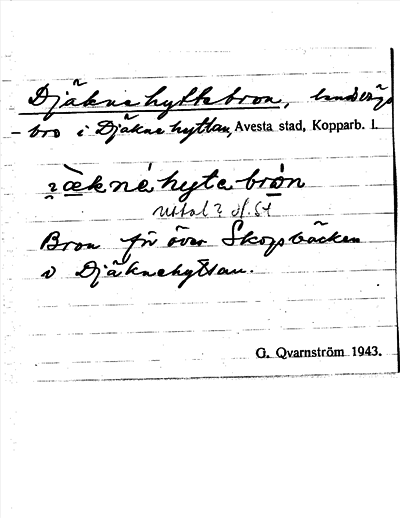 Djäknehyttebron, landsvägs
- bro i Djäknehyttan, Avesta stad, Kopparb. l.
ὰknéhytebrón
uttal?
Bron för över Skogsbäcken
v Djäknehyttan.
G. Qvarnström 1943.